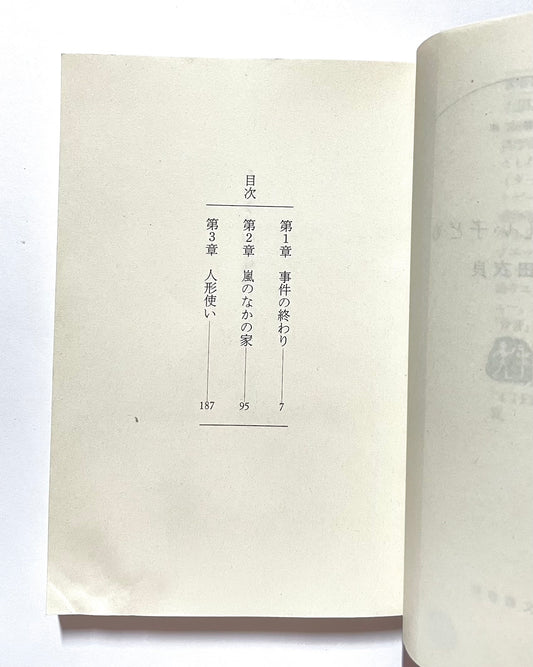 目次
第1章　事件の終わり――7
第2章　嵐のなかの家――95
第3章　人形使い――187